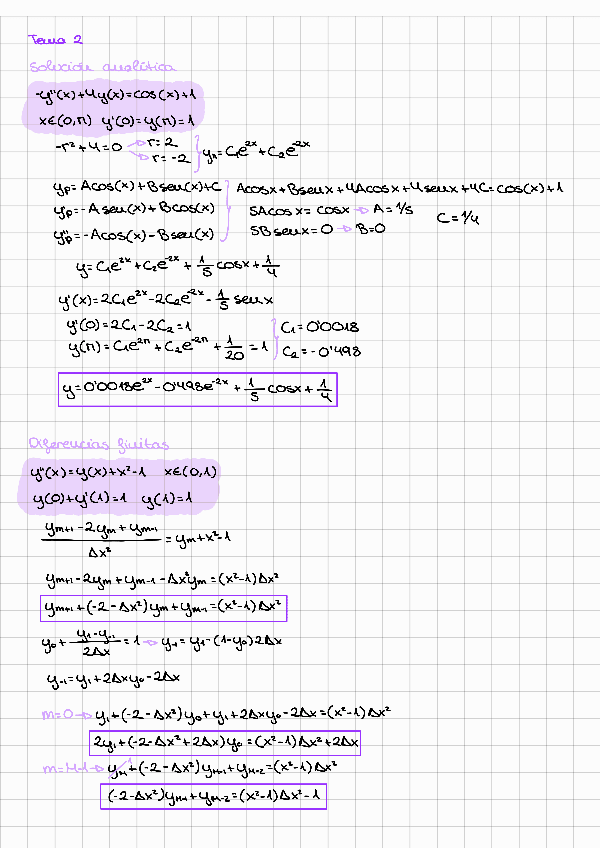 Tema 2
Solución analítica
-y''(x)+4y(x)=cos(x)+1
x∈(0,π) y'(0)=y(π)=1
-r²+4=0 → r=2
→ r=-2 } yₕ=C₁e²ˣ+C₂e⁻²ˣ
yₚ=Acos(x)+Bsen(x)+C } Acosx+Bsenx+4Acosx+4senx+4C=cos(x)+1
y'ₚ=-Asen(x)+Bcos(x) 5Acosx=cosx → A=1/5 C=1/4
y''ₚ=-Acos(x)-Bsen(x) 5Bsenx=0 → B=0
y=C₁e²ˣ+C₂e⁻²ˣ+1/5 cosx+1/4
y'(x)=2C₁e²ˣ-2C₂e⁻²ˣ-1/5 senx
y'(0)=2C₁-2C₂=1 } C₁=0'0018
y(π)=C₁e²ᵖⁱ+C₂e⁻²ᵖⁱ+1/20=1 C₂=-0'498
y=0'0018e²ˣ-0'498e⁻²ˣ+1/5 cosx+1/4
Diferencias finitas
y''(x)=y(x)+x²-1 x∈(0,1)
y(0)+y'(1)=1 y(1)=1
(yₘ₊₁-2yₘ+yₘ₋₁)/Δx² = yₘ+x²-1
yₘ₊₁-2yₘ+yₘ₋₁-Δx²yₘ=(x²-1)Δx²
yₘ₊₁+(-2-Δx²)yₘ+yₘ₋₁=(x²-1)Δx²
y₀+(y₁-y₋₁)/2Δx=1 → y₋₁=y₁-(1-y₀)2Δx
y₋₁=y₁+2Δxy₀-2Δx
m=0 → y₁+(-2-Δx²)y₀+y₁+2Δxy₀-2Δx=(x²-1)Δx²
2y₁+(-2-Δx²+2Δx)y₀=(x²-1)Δx²+2Δx
m=M-1 → y_M+(-2-Δx²)y_M-1+y_M-2=(x²-1)Δx²
(-2-Δx²)y_M-1+y_M-2=(x²-1)Δx²-1